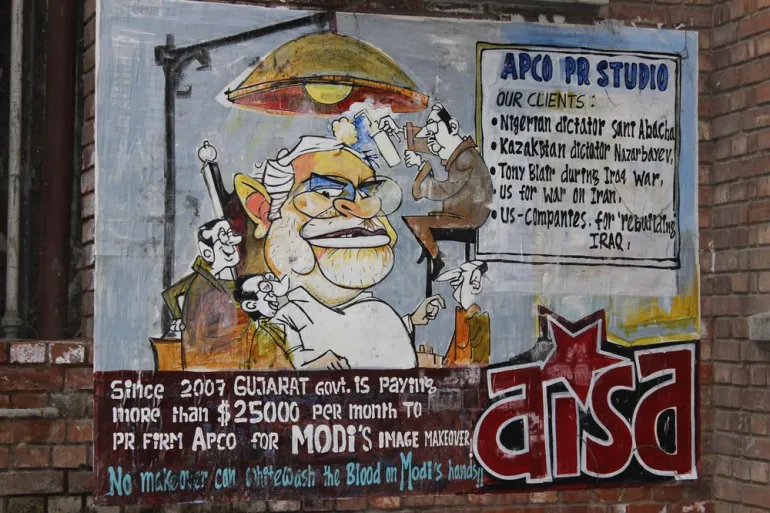 APCO PR STUDIO
OUR CLIENTS :
• Nigerian dictator Sani Abacha
• Kazakistan dictator Nazarbayev,
• Tony Blair during Iraq war,
• US for war on Iran,
• US-companies, for 'rebuilding'
IRAQ,
Since 2007 GUJARAT govt. is paying
more than $25000 per month to
PR firm Apco for MODI'S image makeover,
No makeover can whitewash the Blood on Modi's hands!!
aisa